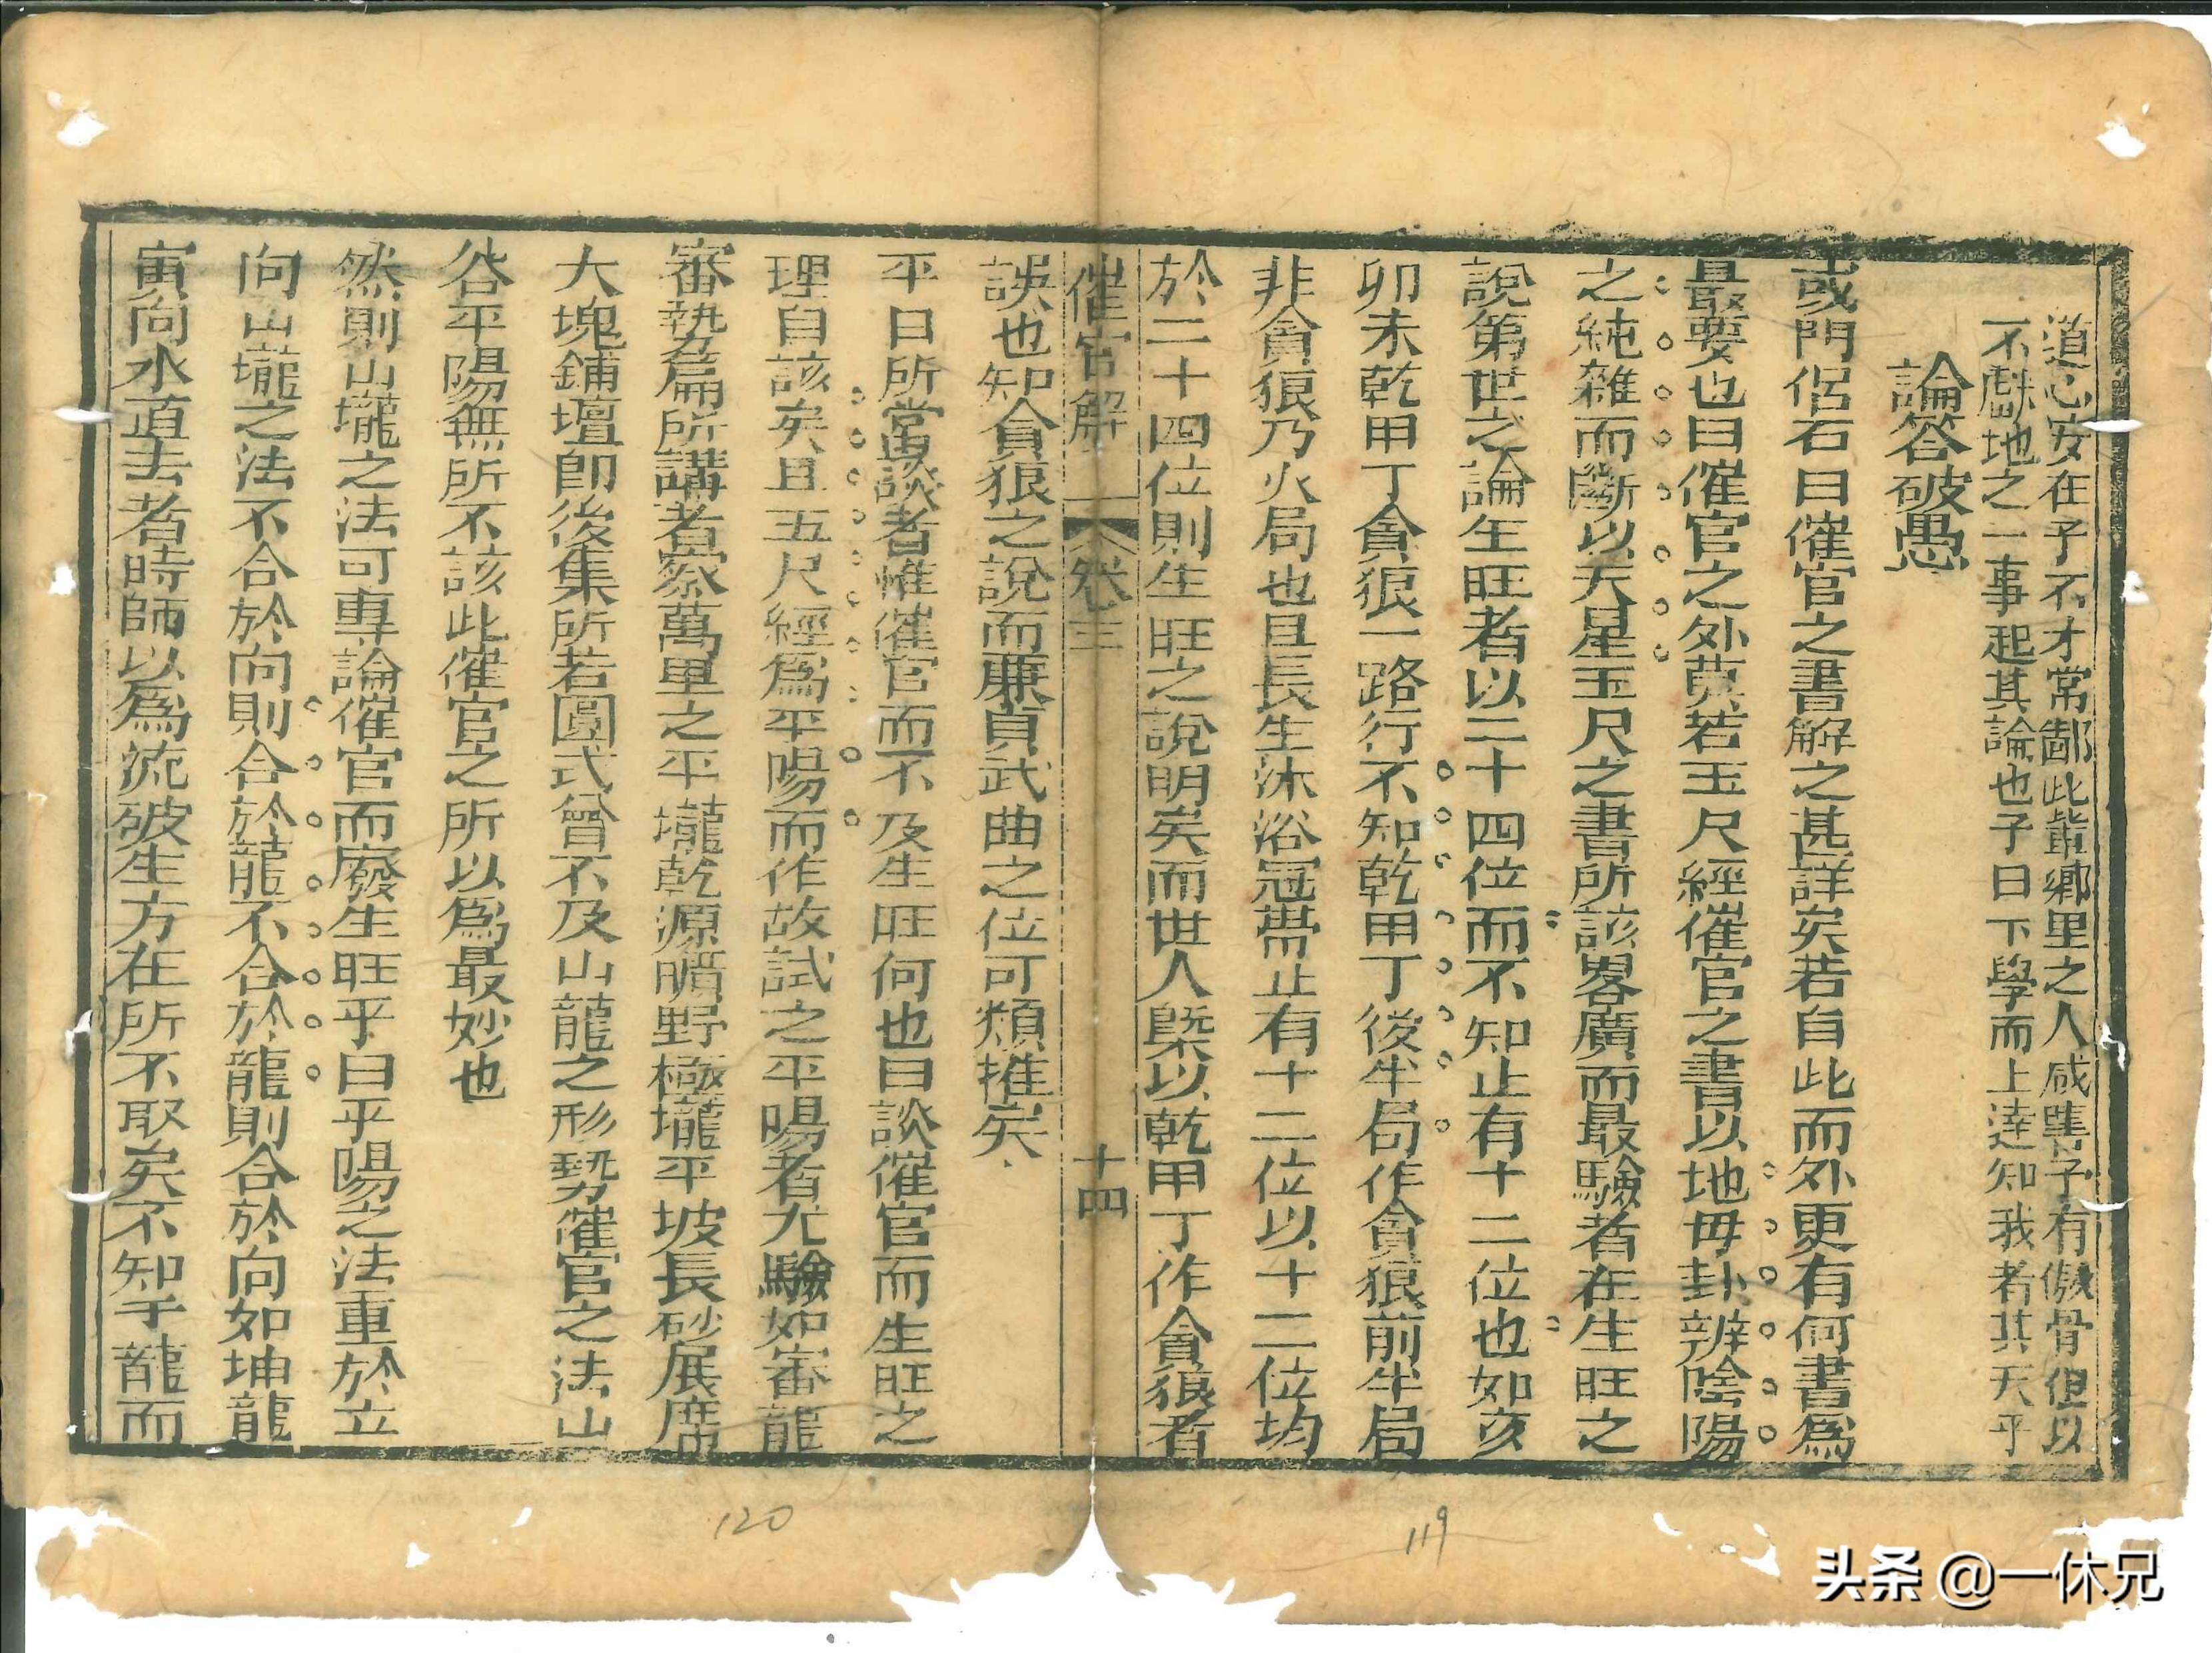 道心安在予不才常鄙此輩鄉里之人咸謂予有傲骨但以
不獻地之一事起其論也予曰下學而上達知我者其天乎
論答破愚
或門侶石曰催官之書解之甚詳矣若自此而外更有何書爲
最要也曰催官之外莫若玉尺經催官之書以地母卦辨陰陽
之純雜而斷以天星玉尺之書所該畧廣而最驗者在生旺之
說第世之論生旺者以二十四位而不知止有十二位也如亥
卯未乾甲丁貪狼一路行不知乾甲丁後半局作貪狼前半局
非貪狼乃火局也且長生沐浴冠帶止有十二位以十二位均
於二十四位則生旺之說明矣而世人槩以乾甲丁作貪狼者
催官解 卷三 十四
誤也知貪狼之說而廉貞武曲之位可類推矣
平日所當談者惟催官而不及生旺何也曰談催官而生旺之
理自該矣且五尺經爲平陽而作故試之平陽者尤驗如審龍
審勢篇所講者察萬里之平壠乾源曠野極壠平坡長砂展席
大塊鋪壇即後集所若圖式曾不及山龍之形勢催官之法山
谷平陽無所不該此催官之所以爲最妙也
然則山壠之法可專論催官而廢生旺乎曰平陽之法重於立
向山壠之法不合於向則合於龍不合於龍則合於向如坤龍
寅向水直去者時師以爲流破生方在所不取矣不知于龍而
120
119
头条 @一休兄